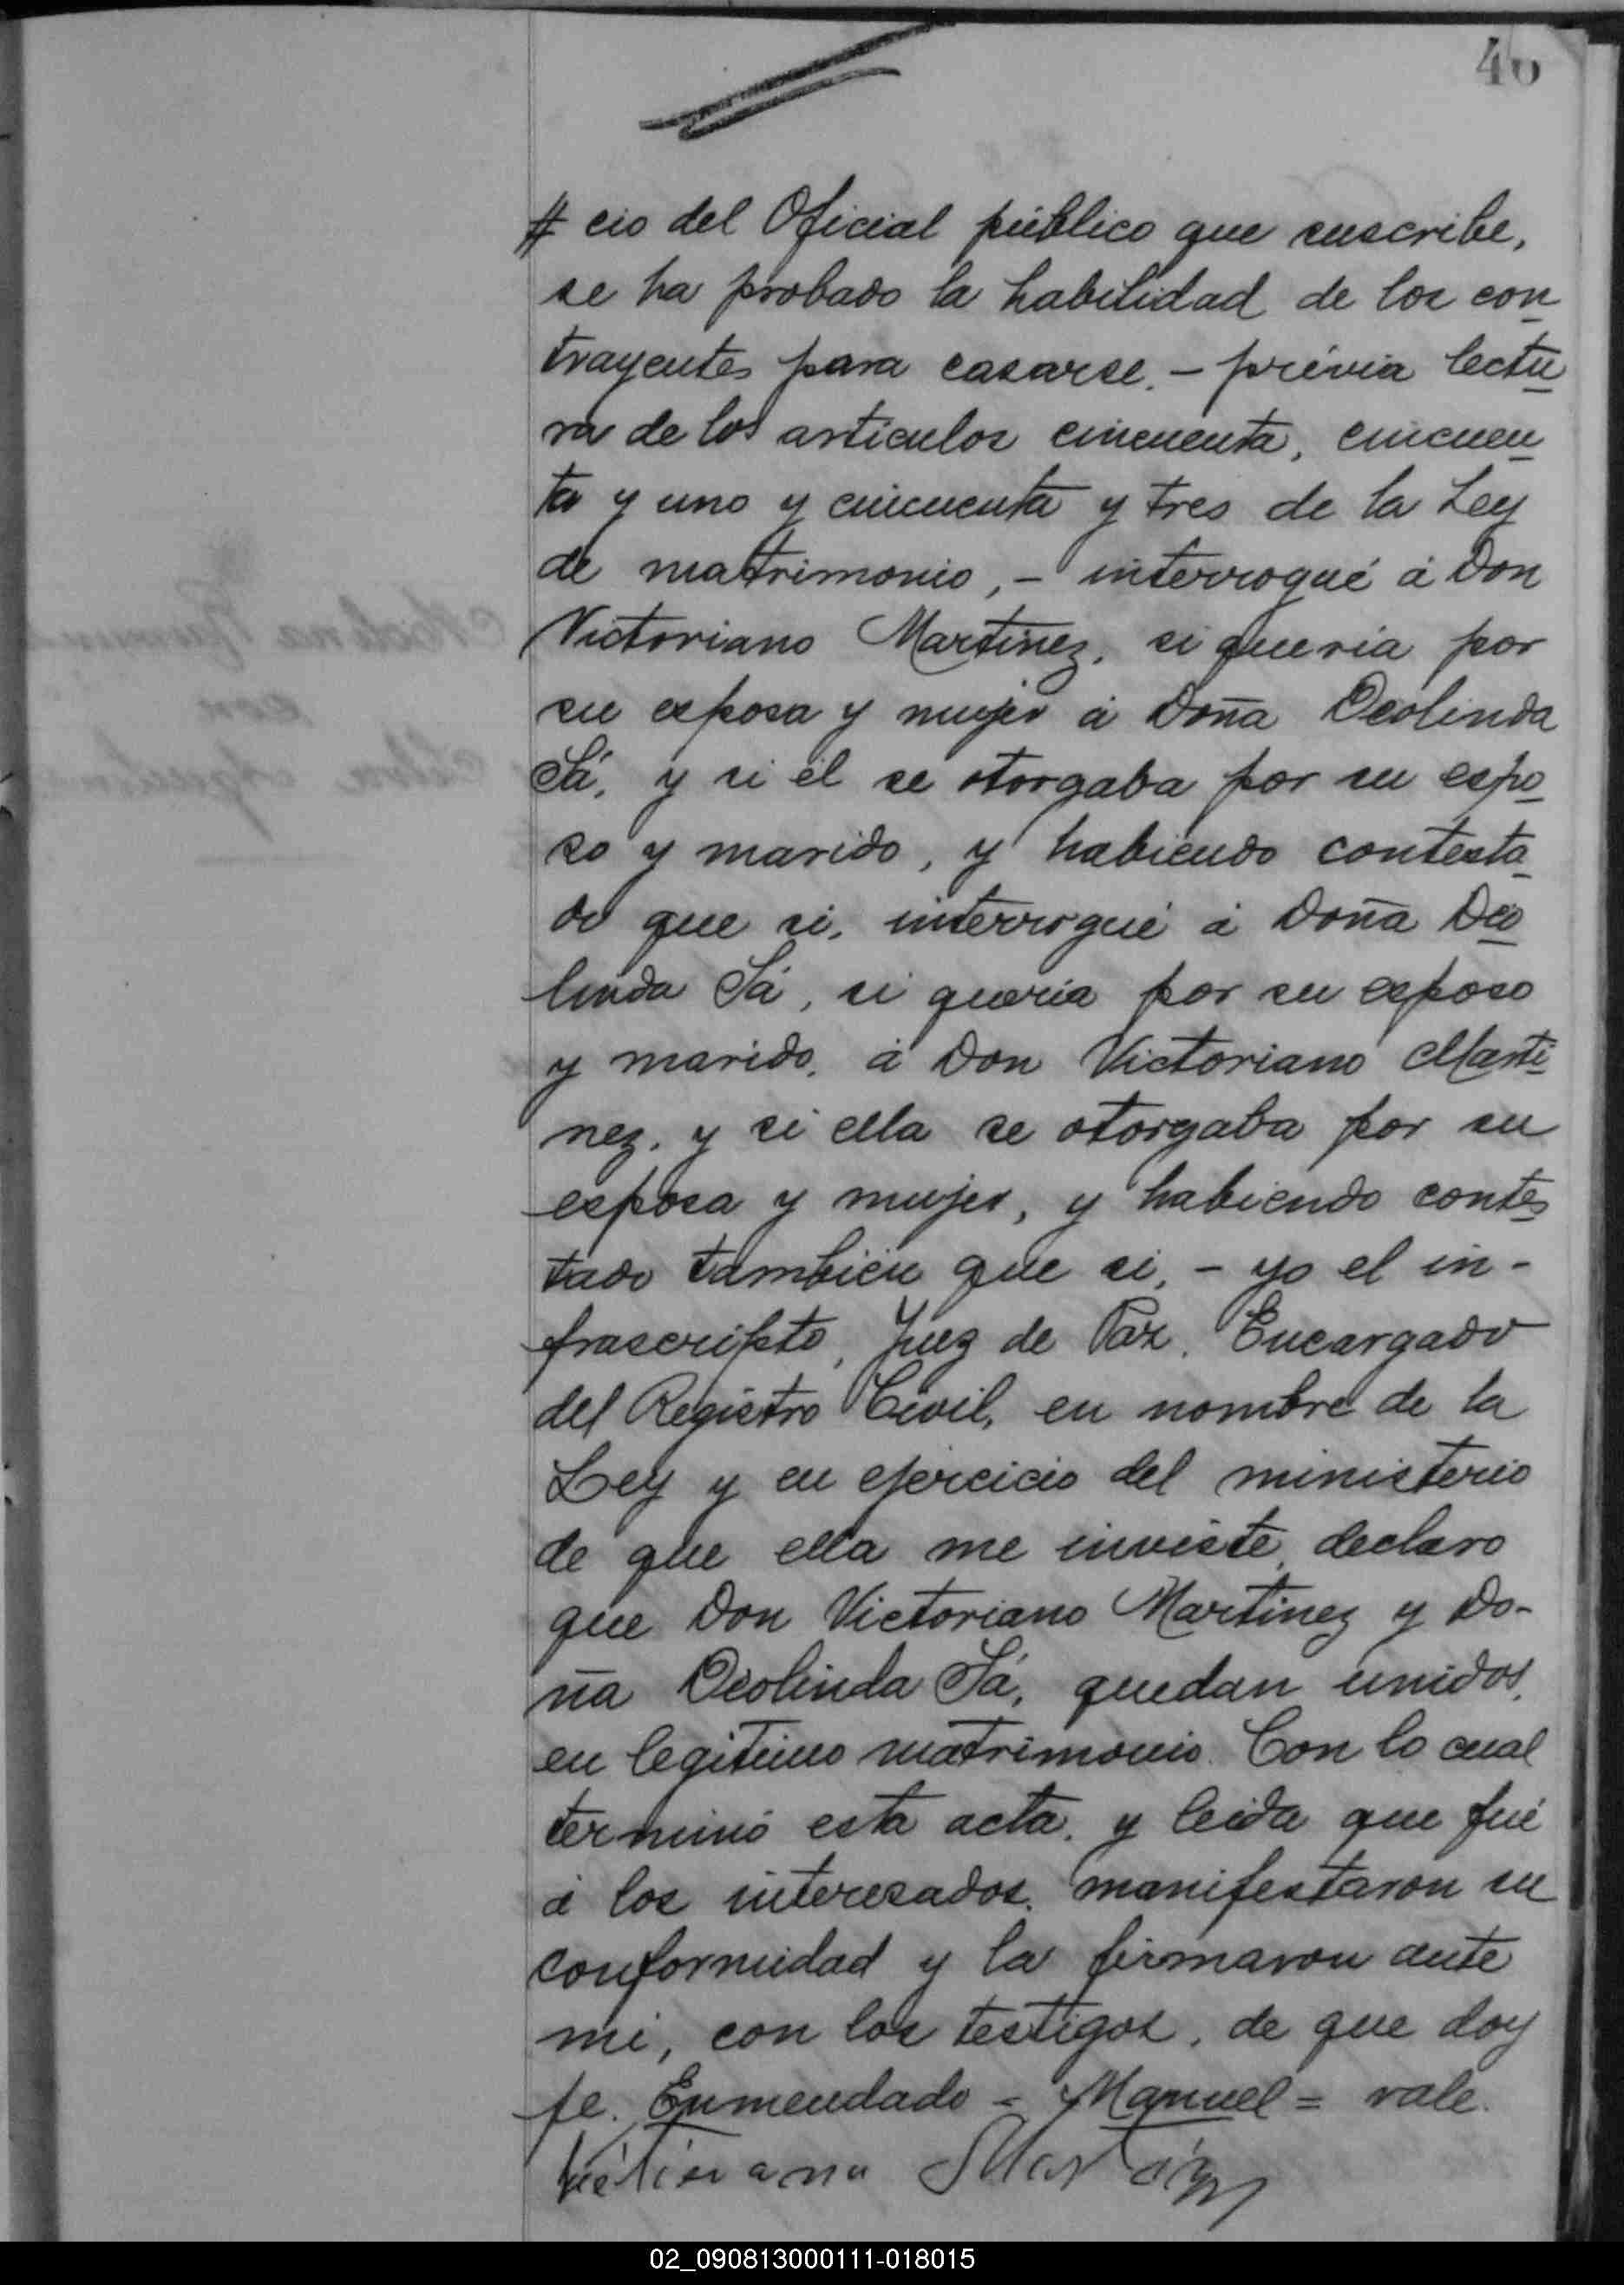 46
# cio del Oficial público que suscribe,
se ha probado la habilidad de los con
trayentes para casarse. - prévia lectu
ra de los artículos cincuenta, cincuen
ta y uno y cincuenta y tres de la Ley
de matrimonio, - interrogué á Don
Victoriano Martinez, si queria por
su esposa y mujer á Doña Deolinda
Sá, y si él se otorgaba por su espo
so y marido, y habiendo contesta
do que si, interrogué á Doña Deo
linda Sá, si queria por su esposo
y marido, á Don Victoriano Marti
nez, y si ella se otorgaba por su
esposa y mujer, y habiendo contes
tado tambien que si, - yo el in-
frascripto, Juez de Paz, Encargado
del Registro Civil, en nombre de la
Ley y en ejercicio del ministerio
de que ella me inviste, declaro
que Don Victoriano Martinez y Do-
ña Deolinda Sá, quedan unidos,
en legitimo matrimonio. Con lo cual
terminó esta acta, y leida que fué
á los interesados, manifestaron su
conformidad y la firmaron ante
mi, con los testigos, de que doy
fe. Enmendado - Manuel = vale.
02_090813000111-018015